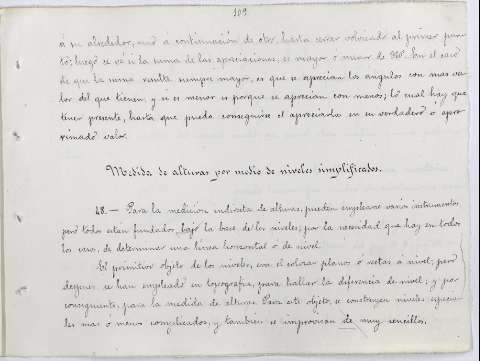 109
á su alrededor, uno á continuación de otro, hasta cerrar volviendo al primer pun-
to; luego se vé si la suma de las apreciaciones, es mayor ó menor de 360º. En el caso
de que la suma resulte siempre mayor, es que se aprecian los ángulos con mas va-
lor del que tienen, y si es menor es porque se aprecian con menos; lo cual hay que
tener presente, hasta que pueda conseguirse el apreciarlos en su verdadero ó apro-
ximado valor.
Medida de alturas por medio de niveles simplificados.
48. — Para la medicion indirecta de alturas, pueden emplearse varios instrumentos
pero todos estan fundados, bajo la base de los niveles; por la necesidad que hay en todos
los casos, de determinar una linea horizontal ó de nivel.
El primitivo objeto de los niveles, era el colocar planos ó rectas á nivel; pero
despues se han empleado en topografía, para hallar la diferencia de nivel; y por
consiguiente, para la medida de alturas. Para este objeto, se construyen niveles especia-
les mas ó menos complicados; y tambien se improvisan de muy sencillos.